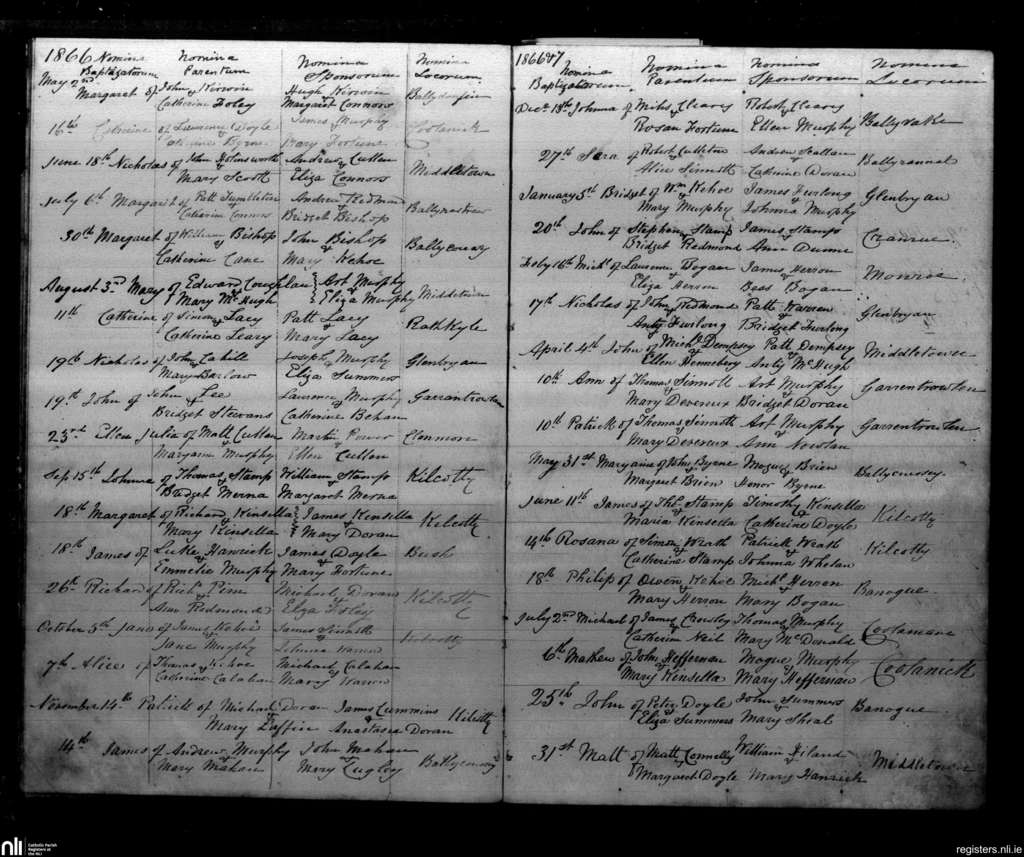 1866 Nomina Nomina Nomina Nomina
Baptizatorum Parentum Sponsorum Locorum
May 2nd Margaret of John Kirwin Hugh Kirwin
Catherine Foley Margaret Connors
16th Catherine of Laurence Doyle James Murphy Cootanick
Catherine Byrne Mary Fortune
June 18th Nicholas of John Holmsworth Andrew Cullen Middletown
Mary Scott Eliza Connors
July 6th Margaret of Patt Tumbleton Andrew Redmond
Catherine Connors Bridget Bishop
30th Margaret of William Bishop John Bishop
Catherine Cane Mary Kehoe
August 3rd Mary of Edward Coughlan Art Murphy Middletown
& Mary McHugh & Eliza Murphy
11th Catherine of Simon Lacy Patt Lacy RathKyle
Catherine Leary Mary Lacy
19th Nicholas of John Cahill Joseph Murphy Glenbryan
Mary Barlow Eliza Summers
19th John of John Lee Laurence Murphy Garrantrowlan
Bridget Stevans Catherine Behan
23rd Ellen Julia of Matt Cullen Martin Power Clonmore
Maryann Murphy Ellen Cullen
Sep 15th Johnna of Thomas Stamp William Stamp Kilcotty
Bridget Merna Margaret Merna
18th Margaret of Richard Kinsella James Kinsella Kilcotty
Mary Kinsella & Mary Doran
18th James of Luke Hanrick James Doyle Bush
Murphy Mary Fortune
26th Richard of Richd Pime Michael Doran Kilcotty
Ann Redmond Eliza Foley
October 5th Jane of James Kehoe James Sinnott Kilcotty
Jane Murphy Johnna
7th Alice of Thomas Kehoe Michael Calahan
Catherine Calahan Mary
November 14th Patrick of Michael Doran James Cummins Kilcotty
Mary Laffin Anastasia Doran
14th James of Andrew Murphy John Mahan
Mary Mahan Mary Cugley
1866&7 Nomina Nomina Nomina Nomina
Baptizatorum Parentum Sponsorum Locorum
Decr 18th Johnna of Miles Cleary Robert Cleary Ballyrake
Rosan Fortune Ellen Murphy
27th Sara of Robert Cullen Andrew Scallan Ballyrannal
Alice Sinnott Catherine Doran
January 5th Bridget of Wm Kehoe James Furlong Glenbryan
Mary Murphy Johnna Murphy
20th John of Stephen Stamp James Stamps Cranrue
Bridget Redmond Ann Dunne
Feby 16th Michl of Laurence Bogan James Herron Monroe
Eliza Herron Bess Bogan
17th Nicholas of John Redmond Patt Warren Glenbryan
Anty Furlong Bridget Furlong
April 4th John of Michl Dempsey Patt Dempsey Middletown
Ellen Hennebery Anty McHugh
10th Ann of Thomas Sinnott Art Murphy Garrentrowlen
Mary Devereux Bridget Doran
10th Patrick of Thomas Sinnott Art Murphy Garrentrowlen
Mary Devereux Ann Nowlan
May 31st Maryanne of John Byrne Mogue Brien
Margaret Brien Honor Byrne
June 11th James of Ths Stamp Timothy Kinsella Kilcotty
Maria Kinsella Catherine Doyle
14th Rosana of Simon Wrath Patrick Wrath Kilcotty
Catherine Stamp Johnna Whelan
18th Philip of Owen Kehoe Michl Herron Banogue
Mary Herron Mary Bogan
July 2nd Michael of James Crosby Thomas Murphy Cootamane
Catherine Neil Mary McDonald
6th Mathew of John Heffernan Mogue Murphy Cootanick
Mary Kinsella Mary Heffernan
25th John of Peter Doyle John Summers Banogue
Eliza Summers Mary Shoal
31st Matt of Matt Connelly William Hiland Middletown
& Margaret Doyle Mary Hanrick
nli Catholic Parish
Registers at
the NLI
registers.nli.ie